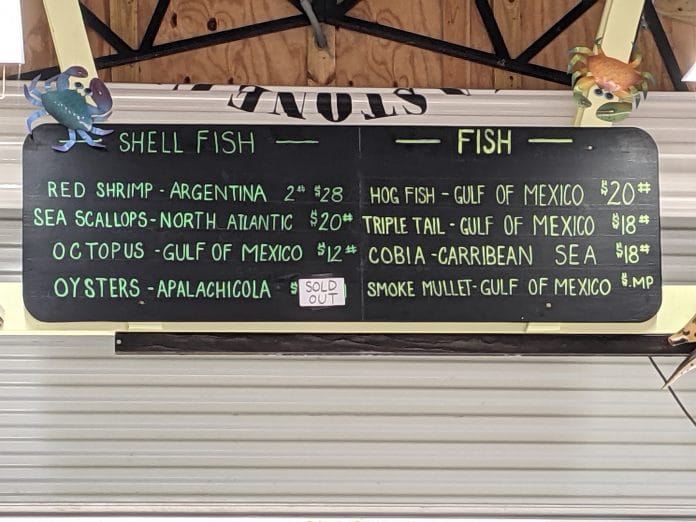 STONE
SHELL FISH —
RED SHRIMP - ARGENTINA 2# $28
SEA SCALLOPS - NORTH ATLANTIC $20#
OCTOPUS - GULF OF MEXICO $12#
OYSTERS - APALACHICOLA $ SOLD OUT
— FISH —
HOG FISH - GULF OF MEXICO $20#
TRIPLE TAIL - GULF OF MEXICO $18#
COBIA - CARRIBEAN SEA $18#
SMOKE MULLET - GULF OF MEXICO $.MP